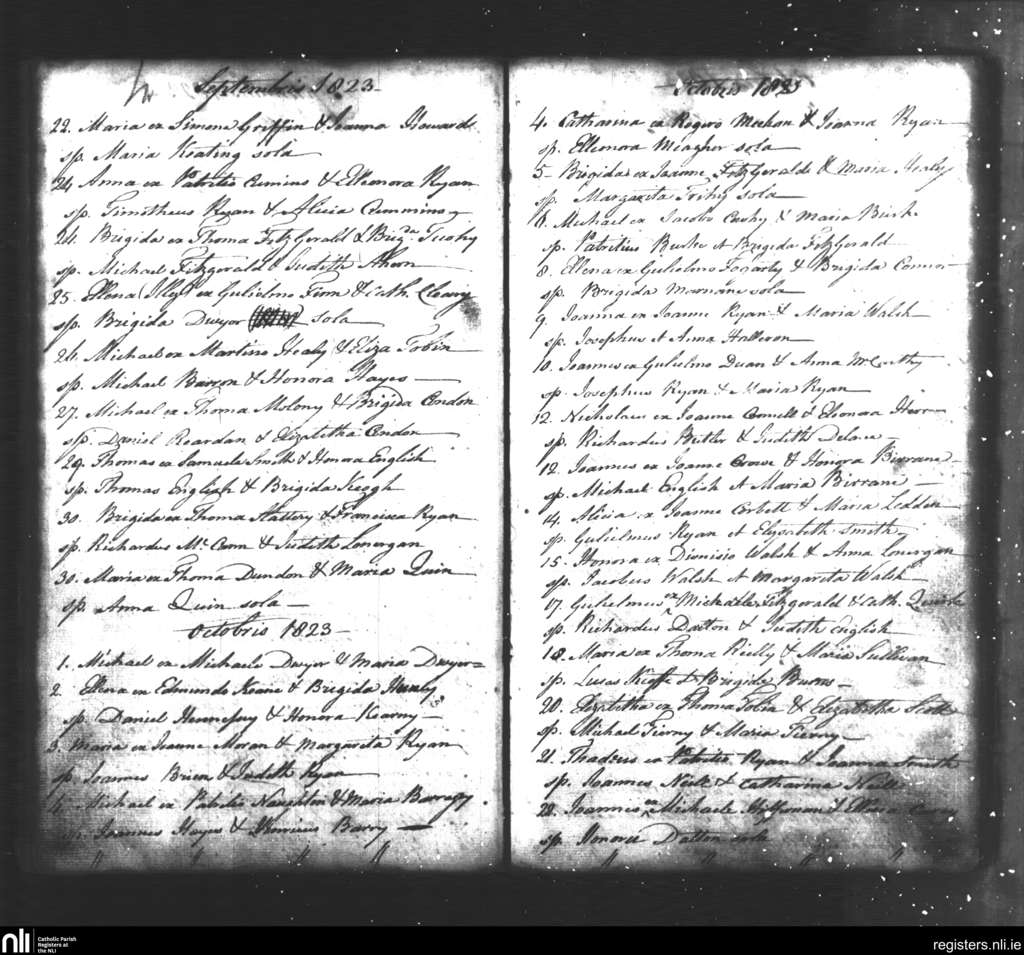 Septembris 1823
22. Maria ex Simone Griffin & Joanna Howard
sp. Maria Keating sola
24. Anna ex Patritio Cumins & Elleonora Ryan
sp. Timotheus Ryan & Alicia Cummins
24. Brigida ex Thoma FitzGerald & Brigda Tuohy
sp. Michael Fitzgerald & Judith Ahern
25. Ellena (Illegt) ex Gulielmo Finn & Cath. Cleary
sp. Brigida Dwyer sola
26. Michael ex Martino Healy & Eliza Tobin
sp. Michael Barron & Honora Hayes
27. Michael ex Thoma Molony & Brigida Condon
sp. Daniel Reardan & Elizabetha Condon
29. Thomas ex Samuele Smith & Honora English
sp. Thomas English & Brigida Keogh
30. Brigida ex Thoma Slattery & Francisca Ryan
sp. Richardus Mc Cann & Judith Lonergan
30. Maria ex Thoma Dundon & Maria Quin
sp Anna Quin sola
Octobris 1823
1. Michael ex Michaele Dwyer & Maria Dwyer
2 Ellena ex Edmundo Keane & Brigida
sp. Daniel Hennessy & Honora Kearny
3. Maria ex Joanne Moran & Margarita Ryan
sp. Joannes Brien & Judith Ryan
4. Michael ex Patritio Naughton & Maria
sp. Joannes Hayes & Henricus Barry
Octobris 1823
4. Catharina ex Rogero Meehan & Joanna Ryan
sp. Ellenora Meagher sola
5 Brigida ex Joanne FitzGerald & Maria Healy
sp. Margarita sola
6. Michael ex Jacobo & Maria Burke
sp. Patritius Burke et Brigida FitzGerald
8. Ellena ex Gulielmo Fogarty & Brigida Connor
sp. Brigida Marnane sola
9. Joanna ex Joanne Ryan & Maria Walsh
sp. Josephus et Anna Halloron
10. Joannes ex Gulielmo Duan & Anna McCarthy
sp. Josephus Ryan & Maria Ryan
12. Nicholaus ex Joanne Connell & Eleonora
sp. Richardus Butler & Judith
12. Joannes ex Joanne Crowe & Honora Birrane
sp. Michael English et Maria Birrane
14. Alicia ex Joanne Corbett & Maria
sp. Gulielmus Ryan et Elizabeth Smith
15. Honora ex Dionisio Walsh & Anna Lonergan
sp. Jacobus Walsh et Margarita Walsh
17. Gulielmus ex Michaele Fitzgerald & Cath. Quirke
sp. Richardus Dalton & Judith English
18. Maria ex Thoma Reilly & Maria Sullivan
sp. Lucas et Brigida
20. Elizabetha ex Thoma Tobin & Elizabetha Scott
sp. Michael Tierny & Maria Tierny
21. Thadeus ex Patritio Ryan & Joanna Smith
sp. Joannes Neill & Catharina Neill
22. Joannes ex Michaele Heffernan & Ellena
sp. Honora Dalton sola
nli
Catholic Parish
Registers at
the NLI
registers.nli.ie